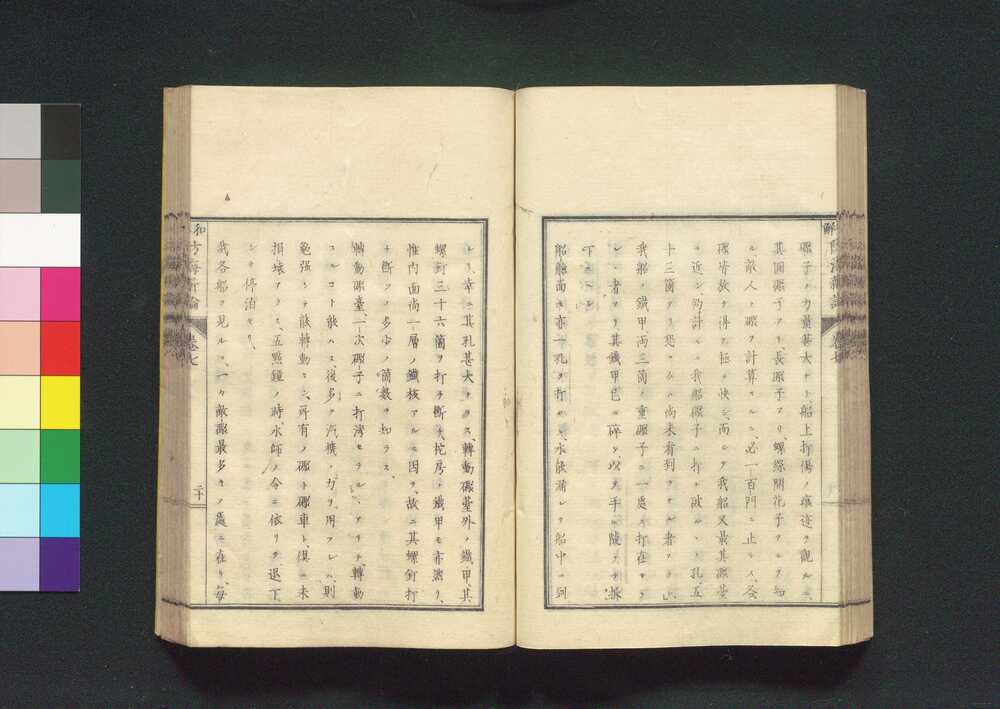 礮子ノ力量甚大ナリ、船上打傷ノ痕迹ヲ觀ルニ、
其圓礮子アリ、長礮子アリ、螺線開花子アルヲ知
ル、敵人ノ礮ヲ計算スルニ、必一百門ニ止ラス、各
礮皆放ヲ得テ極メ快シ、而シテ我船又最其礮臺
ニ近シ、約計シルニ我船礮子ニ打チ破ルヽノ孔五
十三箇アリ、恐クハ尚未看到ラサル者アラン、
我船ノ鐵甲、兩三箇ノ重礮子ニ一處ヲ打在セラ
ルヽ者アリ、其鐵甲已ニ碎ケ、以テ手ニ隨テ拆
下スヘシ
船艙尚ホ亦一孔ヲ打レ、水能滿レテ船中ニ到
レリ、幸ニ其孔甚大ナラス、轉動礮臺外ノ鐵甲、其
螺釘三十六箇ヲ打チ斷ル、柁房ノ鐵甲モ亦然リ、
惟内面尚一層ノ鐵板アルニ因ヲ、故ニ其螺釘打
チ斷ツノ多少ノ箇數ヲ知ラス、
轉動礮臺、一次礮子ニ打灣セラル、アリテ轉動
スルコト能ハス、後多ク汽機ノ力ヲ用フレハ、則
勉强シテ能轉動ス、所有ノ礮ト礮車ト俱ニ未
損壊アラス、五點鐘ノ時、水師ノ令ニ依リテ、退下
シテ停泊セリ、
我各船ヲ見ルニ、一々敵礮最多キノ處ニ在リ、每
和
解
防海新論
卷七
二十